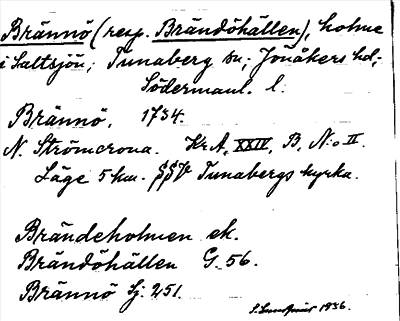 Brännö (resp. Brändöhällen), holme
i Saltsjön; Tunaberg sn; Jönåkers hd;
Södermanl. l.
Brännö. 1734.
N. Strömcrona. Kr A, XXIV, B, N:o II.
Läge 5 km. SSV Tunabergs kyrka.
Brändeholmen ek.
Brändöhällen G. 56.
Brännö Sj. 251.
S. Lundqvist 1936.